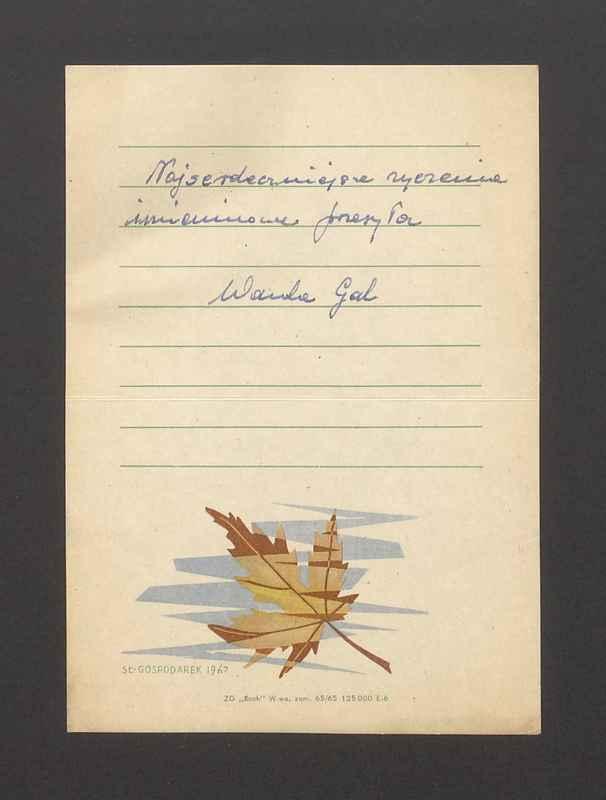 Najserdeczniejsze życzenia
imieninowe przesyła
Wanda Gal
ST. GOSPODAREK 1962
ZG „Ruch" W-wa, zam. 65/62 125 000 E-6